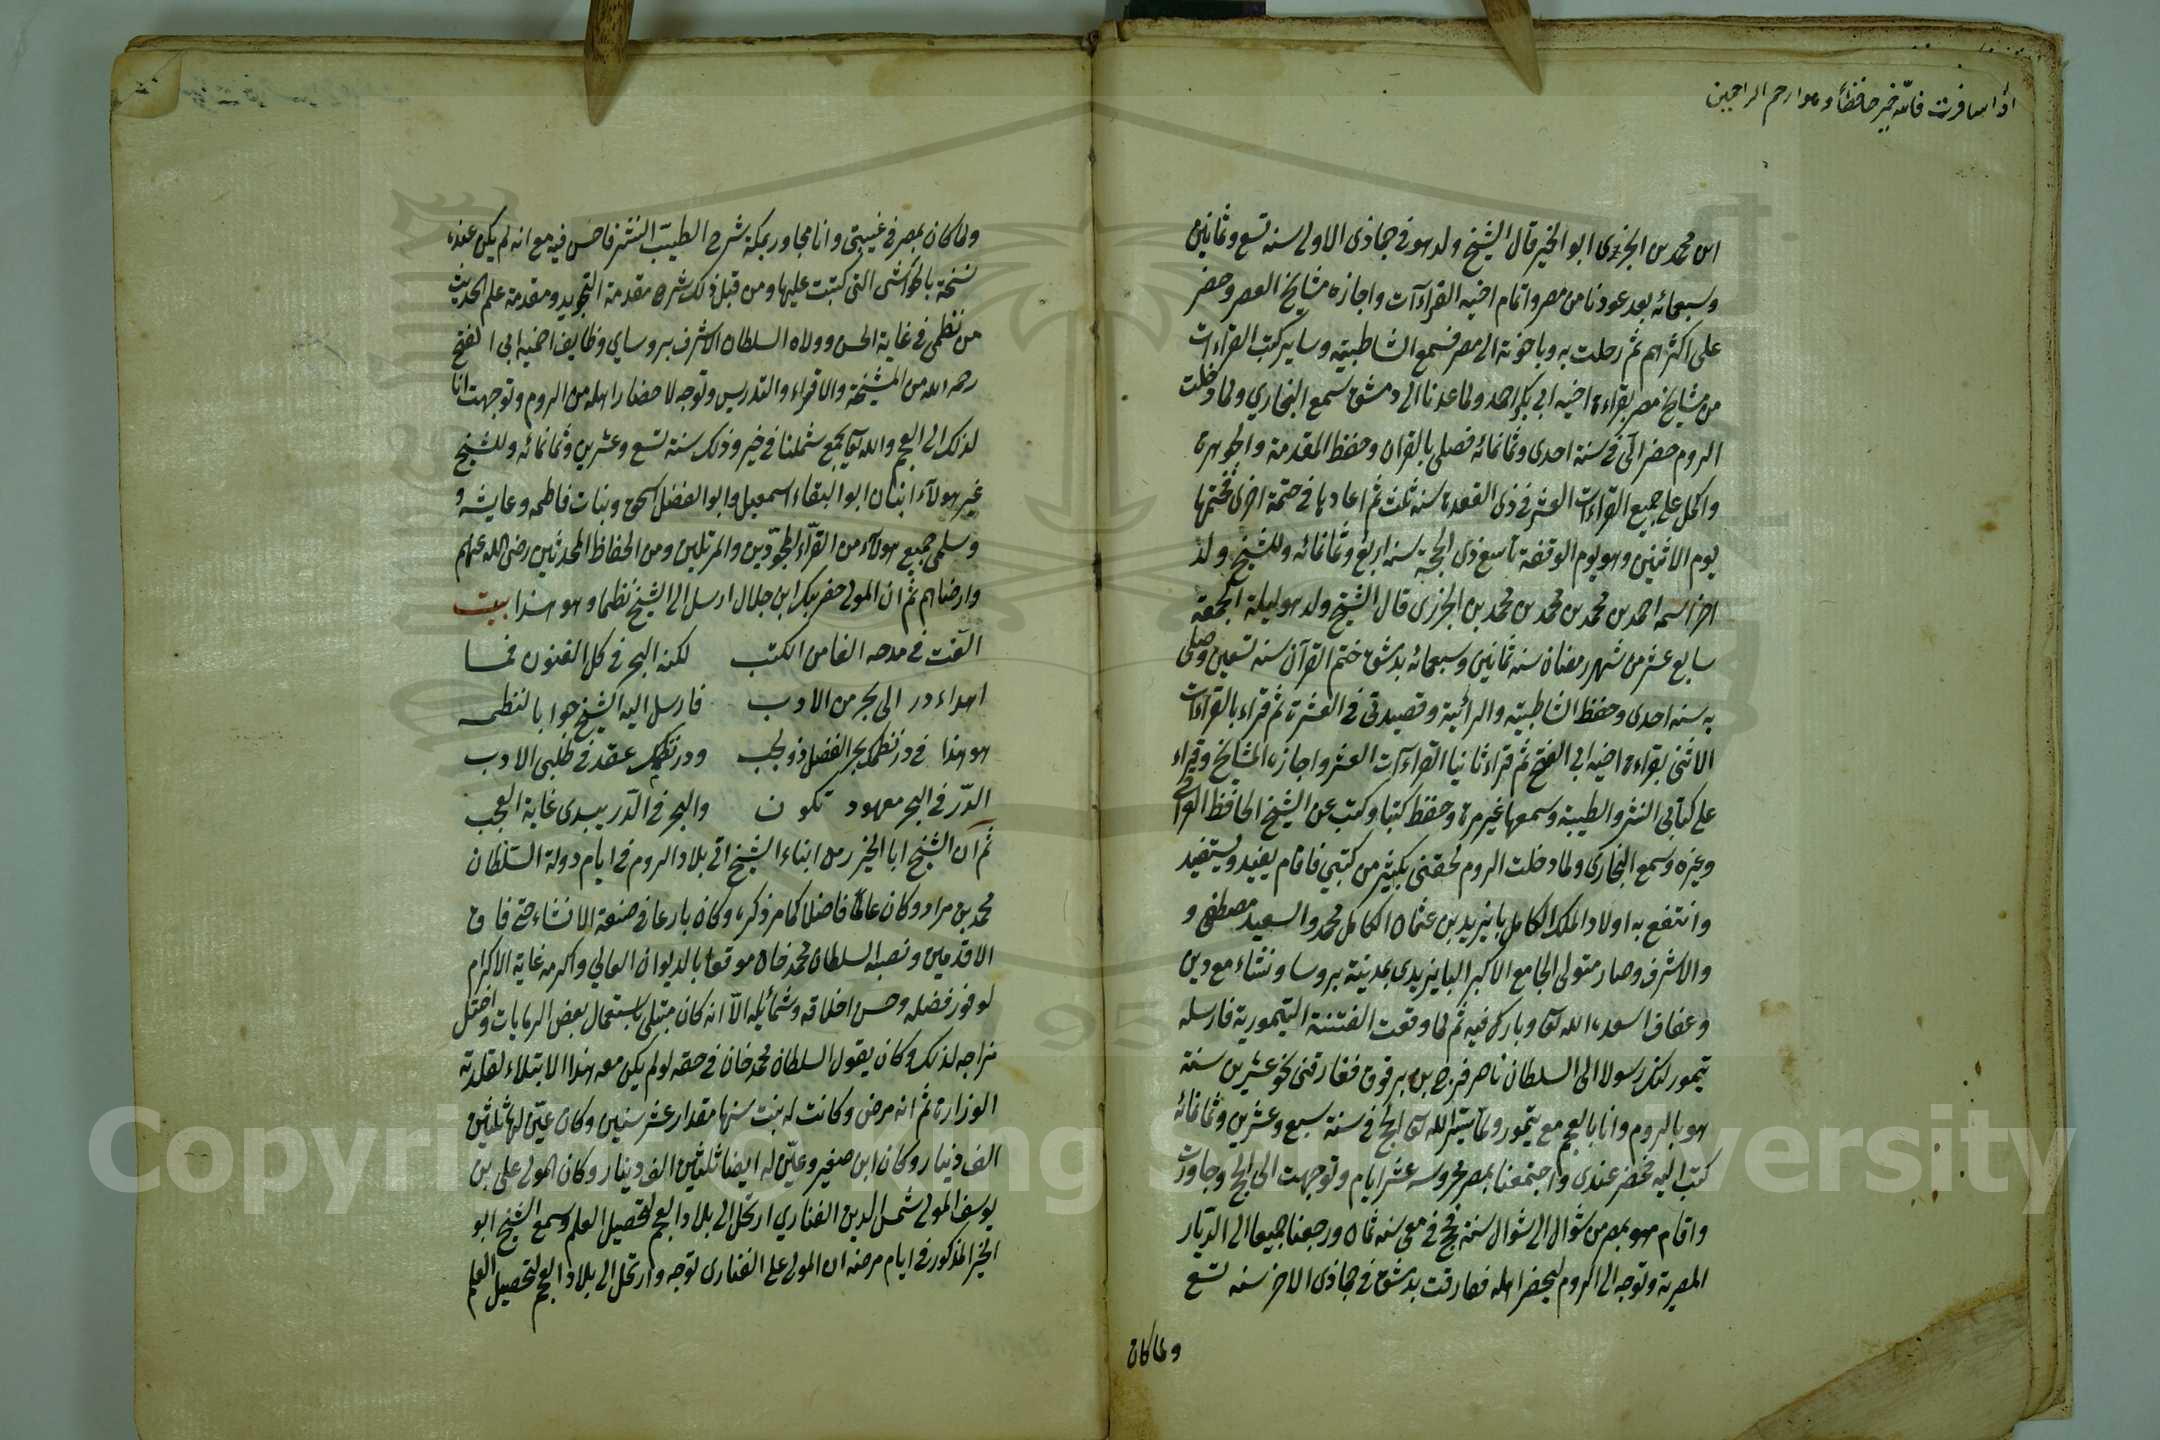 اذا سافرت فالله خير حافظا وهو ارحم الراحمين
ابن محمد بن الجزرى ابو الخير قال الشيخ ولد هو فى جماذى الاولى سنه تسع وثمانين
وسبعمائه بعد عودنا من مصر واتمام اخيه القراءات واجازه مشايخ العصر وحضر
على اكثرهم ثم رحلت به وباخوته الى مصر فسمع الشاطبيه وساير كتب القراءات
من مشايخ مصر بقراءة اخيه ابى بكر احمد ولما عدنا الى دمشق سمع البخاري ولما دخلت
الروم حضر الى فى سنة احدى وثمانمائه فصلى بالقران وحفظ المقدمة والجوهرة
واكمل على جميع القراءات العشر فى ذى القعدة سنه ثلث ثم اعادها فى ختمة اخرى فختمها
يوم الاثنين وهو يوم الوقفة تاسع ذى الحجة سنه اربع وثمانمائه وللشيخ ولد
اخر اسمه احمد بن محمد بن محمد بن محمد بن الجزرى قال الشيخ ولد هو ليلة الجمعة
سابع عشر من شهر رمضان سنه ثمانين وسبعمائه بدمشق ختم القرآن سنه تسعين وصلى
به سنه احدى وحفظ الشاطبيه والرائية وقصيدتى فى العشرة ثم قراء بالقراءات
الاثنى بقراءة اخيه ابى الفتح ثم قراء ثانيا القراءات العشر واجازه المشايخ وقراء
على كتابى النشر والطيبة وسمعها غير مرة وحفظ كتبا وكتب عن الشيخ الحافظ العراقى
وغيره وسمع البخارى ولما دخلت الروم لحقنى بكثير من كتبي فاقام يفيد ويستفيد
وانتفع به اولاد الملك الكامل بايزيد بن عثمان الكامل محمد والسعيد مصطفى و
والاشرف وصار متولى الجامع الاكبر البايزيدى بمدينة بروسا ونشاء مع دين
وعفاف اسعده الله تعا وبارك فيه ثم لما وقعت الفتنة التيمورية فارسله
تيمور لنك رسولا الى السلطان ناصر فرج بن برقوق ففارقنى نحو عشرين سنة
هو بالروم وانا بالعجم مع تيمور ولما يسر الله تعا الحج فى سنة سبع وعشرين وثمانمائه
كتب اليه فحضر عندى واجتمعنا بمصر محروسه عشر ايام وتوجهت الى الحج وجاورت
واقام هو بمصر من شوال الى شوال سنة فحج فى معى سنه ثمان ورجعنا جميعا الى الديار
المصرية وتوجه الى الروم ليحضر اهله ففارقت بدمشق فى جماذى الاخر سنه تسع
ولما كان
ولما كان بمصر فى غيبتى وانا مجاور بمكة شرح الطيبة النشر فاحسن فيه مع انه لم يكن عنده
نسخة بالحواشى التى كتبت عليها ومن قبل ذلك شرح مقدمة التجويد ومقدمة علم الحديث
من نظمى فى غاية الحسن وولاه السلطان الاشرف برسباي وظايف اخيه ابى الفتح
رحمه الله من المشيخة والاقراء والتدريس وتوجه لاحضار اهله من الروم وتوجهت انا
لذلك الى العجم والله تعا يجمع شملنا فى خير وذلك سنة تسع وعشرين وثمانمائه وللشيخ
غير هولاء ابنان ابو البقاء اسمعيل وابو الفضل اسحق وبنات فاطمه وعايشه و
وسلمى جميع هولاء من القراء المجودين والمرتلين ومن الحفاظ المحدثين رضى الله عنهم
وارضاهم ثم ان المولى خضر بك ابن جلال ارسل الى الشيخ نظما وهو هذا بيت
الفت فى مدحه الفا من الكتب لكنه البحر فى كل الفنون فما
اهداء در الى بحر من الادب فارسل اليه الشيخ جوابا لنظمه
هو هذا فى در نظمك بحر الفضل ذو لجب ودر نظمك عقد فى طلبى الادب
الدر فى البحر معهود تكون والبحر فى الدر يبدى غاية العجب
ثم ان الشيخ ابا الخير من ابناء الشيخ اتى بلاد الروم فى ايام دولة السلطان
محمد بن مراد وكان عالما فاضلا كما مر ذكره وكان بارعا فى صنعة الانشاء حتى فاق
الاقدمين ونصبه السلطان محمد خان موقعا بالديوان العالي واكرمه غاية الاكرام
لوفور فضله وحسن اخلاقه وشمائله الا انه كان مبتلى باستعمال بعض المركبات واختل
مزاجه لذلك وكان يقول السلطان محمد خان فى حقه لو لم يكن معه هذا الابتلاء لقلدته
الوزارة ثم انه مرض وكانت له بنت سنها مقدار عشر سنين وكان عين لها ثلثين
الف دينار وكان ابن صغير وعين له ايضا ثلثين الف دينار وكان المولى على بن
يوسف المولى شمس الدين الفناري ارتحل الى بلاد العجم لتحصيل العلم وسمع الشيخ ابو
الخير المذكور فى ايام مرضه ان المولى على الفنارى توجه وارتحل الى بلاد العجم لتحصيل العلم